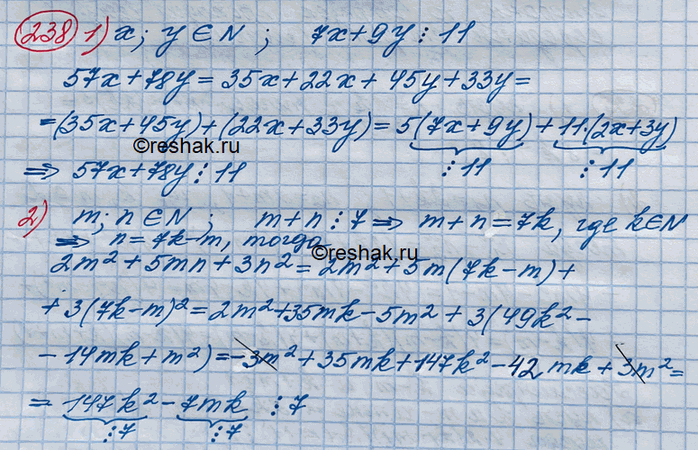 238 1) x; y ∈ N ; 7x+9y ⋮ 11
57x+78y = 35x+22x+45y+33y=
=(35x+45y)+(22x+33y)= 5(7x+9y)+11·(2x+3y)
⋮11 ⋮11
©reshak.ru
⇒ 57x+78y ⋮ 11
2) m; n ∈ N ; m+n ⋮ 7 ⇒ m+n=7k, где k∈N
⇒ n=7k-m, тогда
©reshak.ru
2m²+5mn+3n²=2m²+5m(7k-m)+
+3(7k-m)²=2m²+35mk-5m²+3(49k²-
-14mk+m²)=-3m²+35mk+147k²-42mk+3m²=
= 147k²-7mk ⋮7
⋮7 ⋮7